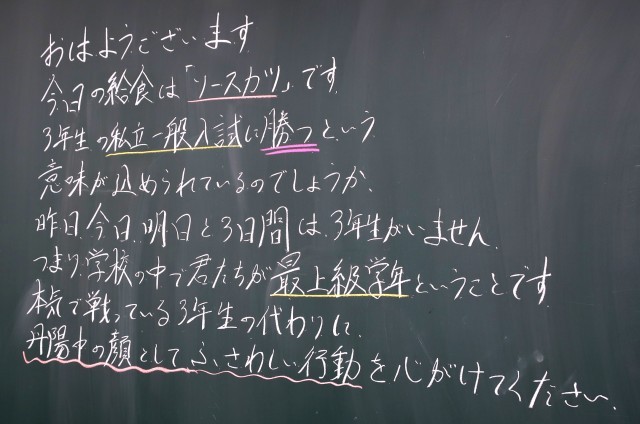 おはようございます
今日の給食は「ソースカツ」です
3年生の私立一般入試に勝つという
意味が込められているのでしょうか、
昨日、今日、明日と3日間は、3年生がいません。
つまり、学校の中で君たちが最上級学年ということです
本気で戦っている3年生の代わりに、
丹陽中の顔としてふさわしい行動を心がけてください。